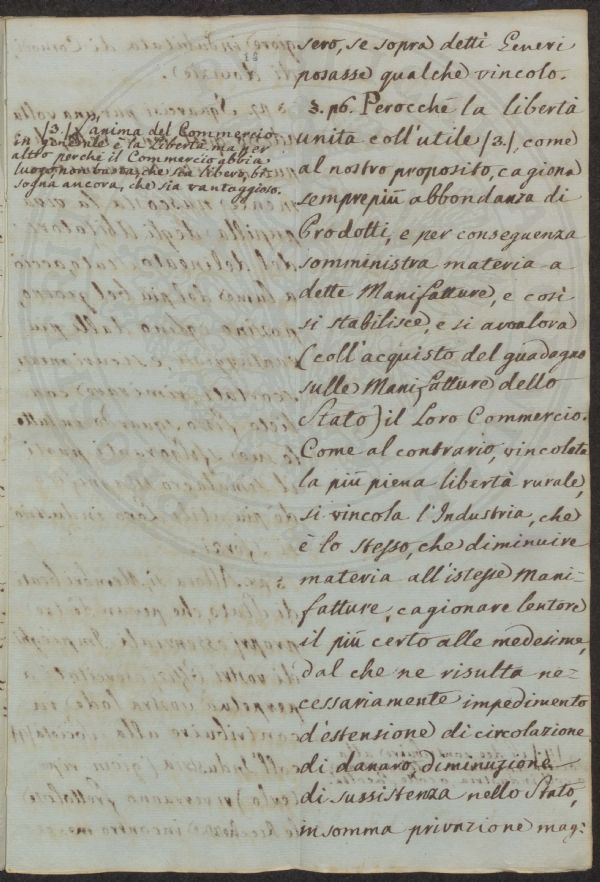 sero, se sopra detti Generi
posasse qualche vincolo.
§. 26. Perocchè la libertà
unita coll'utile /3./, come
al nostro proposito, cagiona
semprepiù abbondanza di
Prodotti, e per conseguenza
somministra materia a
dette Manifatture, e così
si stabilisce, e si avvalora
(coll'acquisto del guadagno
sulle Manifatture dello
Stato) il Loro Commercio.
Come al contrario, vincolata
la più piena libertà rurale,
si vincola l'Industria, che
è lo stesso, che diminuire
materia all'istesse Mani-
fatture, cagionare lentore
il più certo alle medesime,
dal che ne risulta ne-
cessariamente impedimento
d'estensione di circolazione
di danaro, diminuzione
di sussistenza nello Stato,
in somma privazione mag:
/3./ L'anima del Commercio
in generale è la libertà, ma per
altro perchè il Commercio abbia
luogo, non basta, che sia libero, bi-
sogna ancora, che sia vantaggioso.